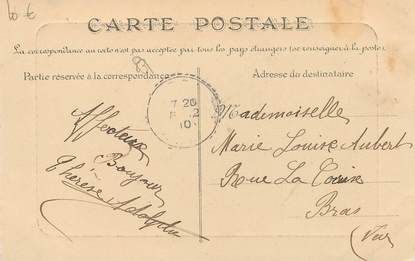 10 €
CARTE POSTALE
La correspondance au recto n'est pas acceptée par tous les pays étrangers (se renseigner à la poste).
Partie réservée à la correspondance
Adresse du destinataire
7 20
10
Affectueux
Bonjour
Thérèse
Mademoiselle
Marie Louise Aubert
Rue La Croix
Bras
(Var)